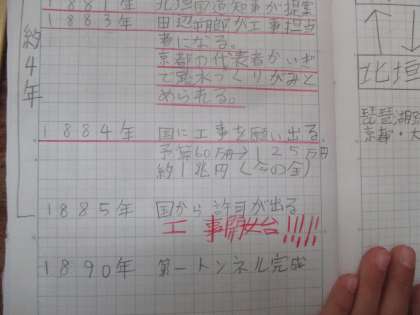 1881年 北垣国道知事が
1883年 田辺朔郎が工事担当
者になる。
京都の代表者かいぎ
で疏水つくりがみと
められる。
1884年 国に工事を願い出る
予算60万円→125万円
約1兆円(今の金)
1885年 国から許可が出る
工事開始!!!!!
1890年 第一トンネル完成
約4年
北垣
琵琶湖
京都・大